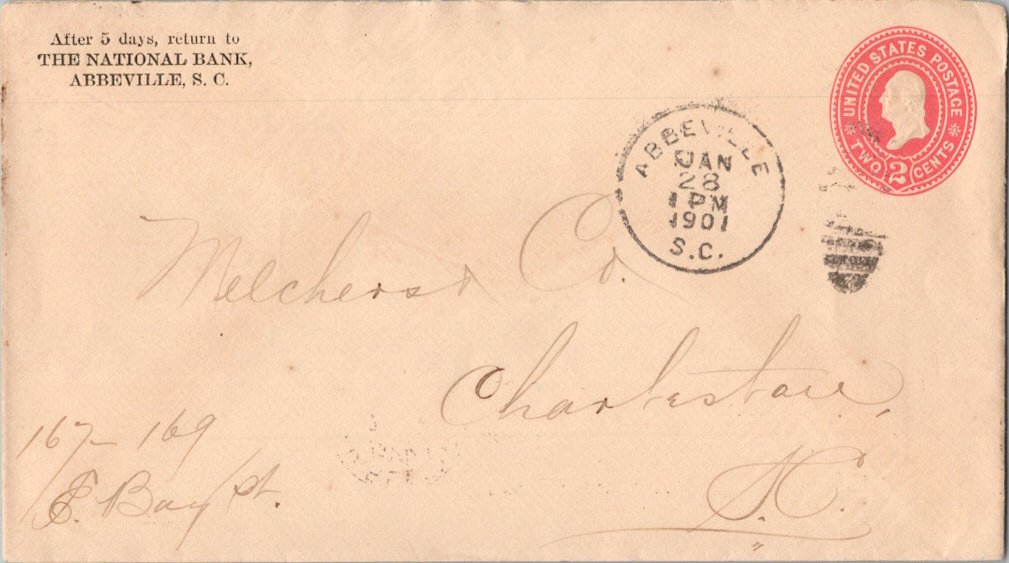 After 5 days, return to
THE NATIONAL BANK,
ABBEVILLE, S. C.
UNITED STATES POSTAGE
TWO 2 CENTS
ABBEVILLE
JAN
28
1 PM
1901
S.C.
Melchers & Co.
Charleston,
S.C.
167 - 169
E. Bay St.